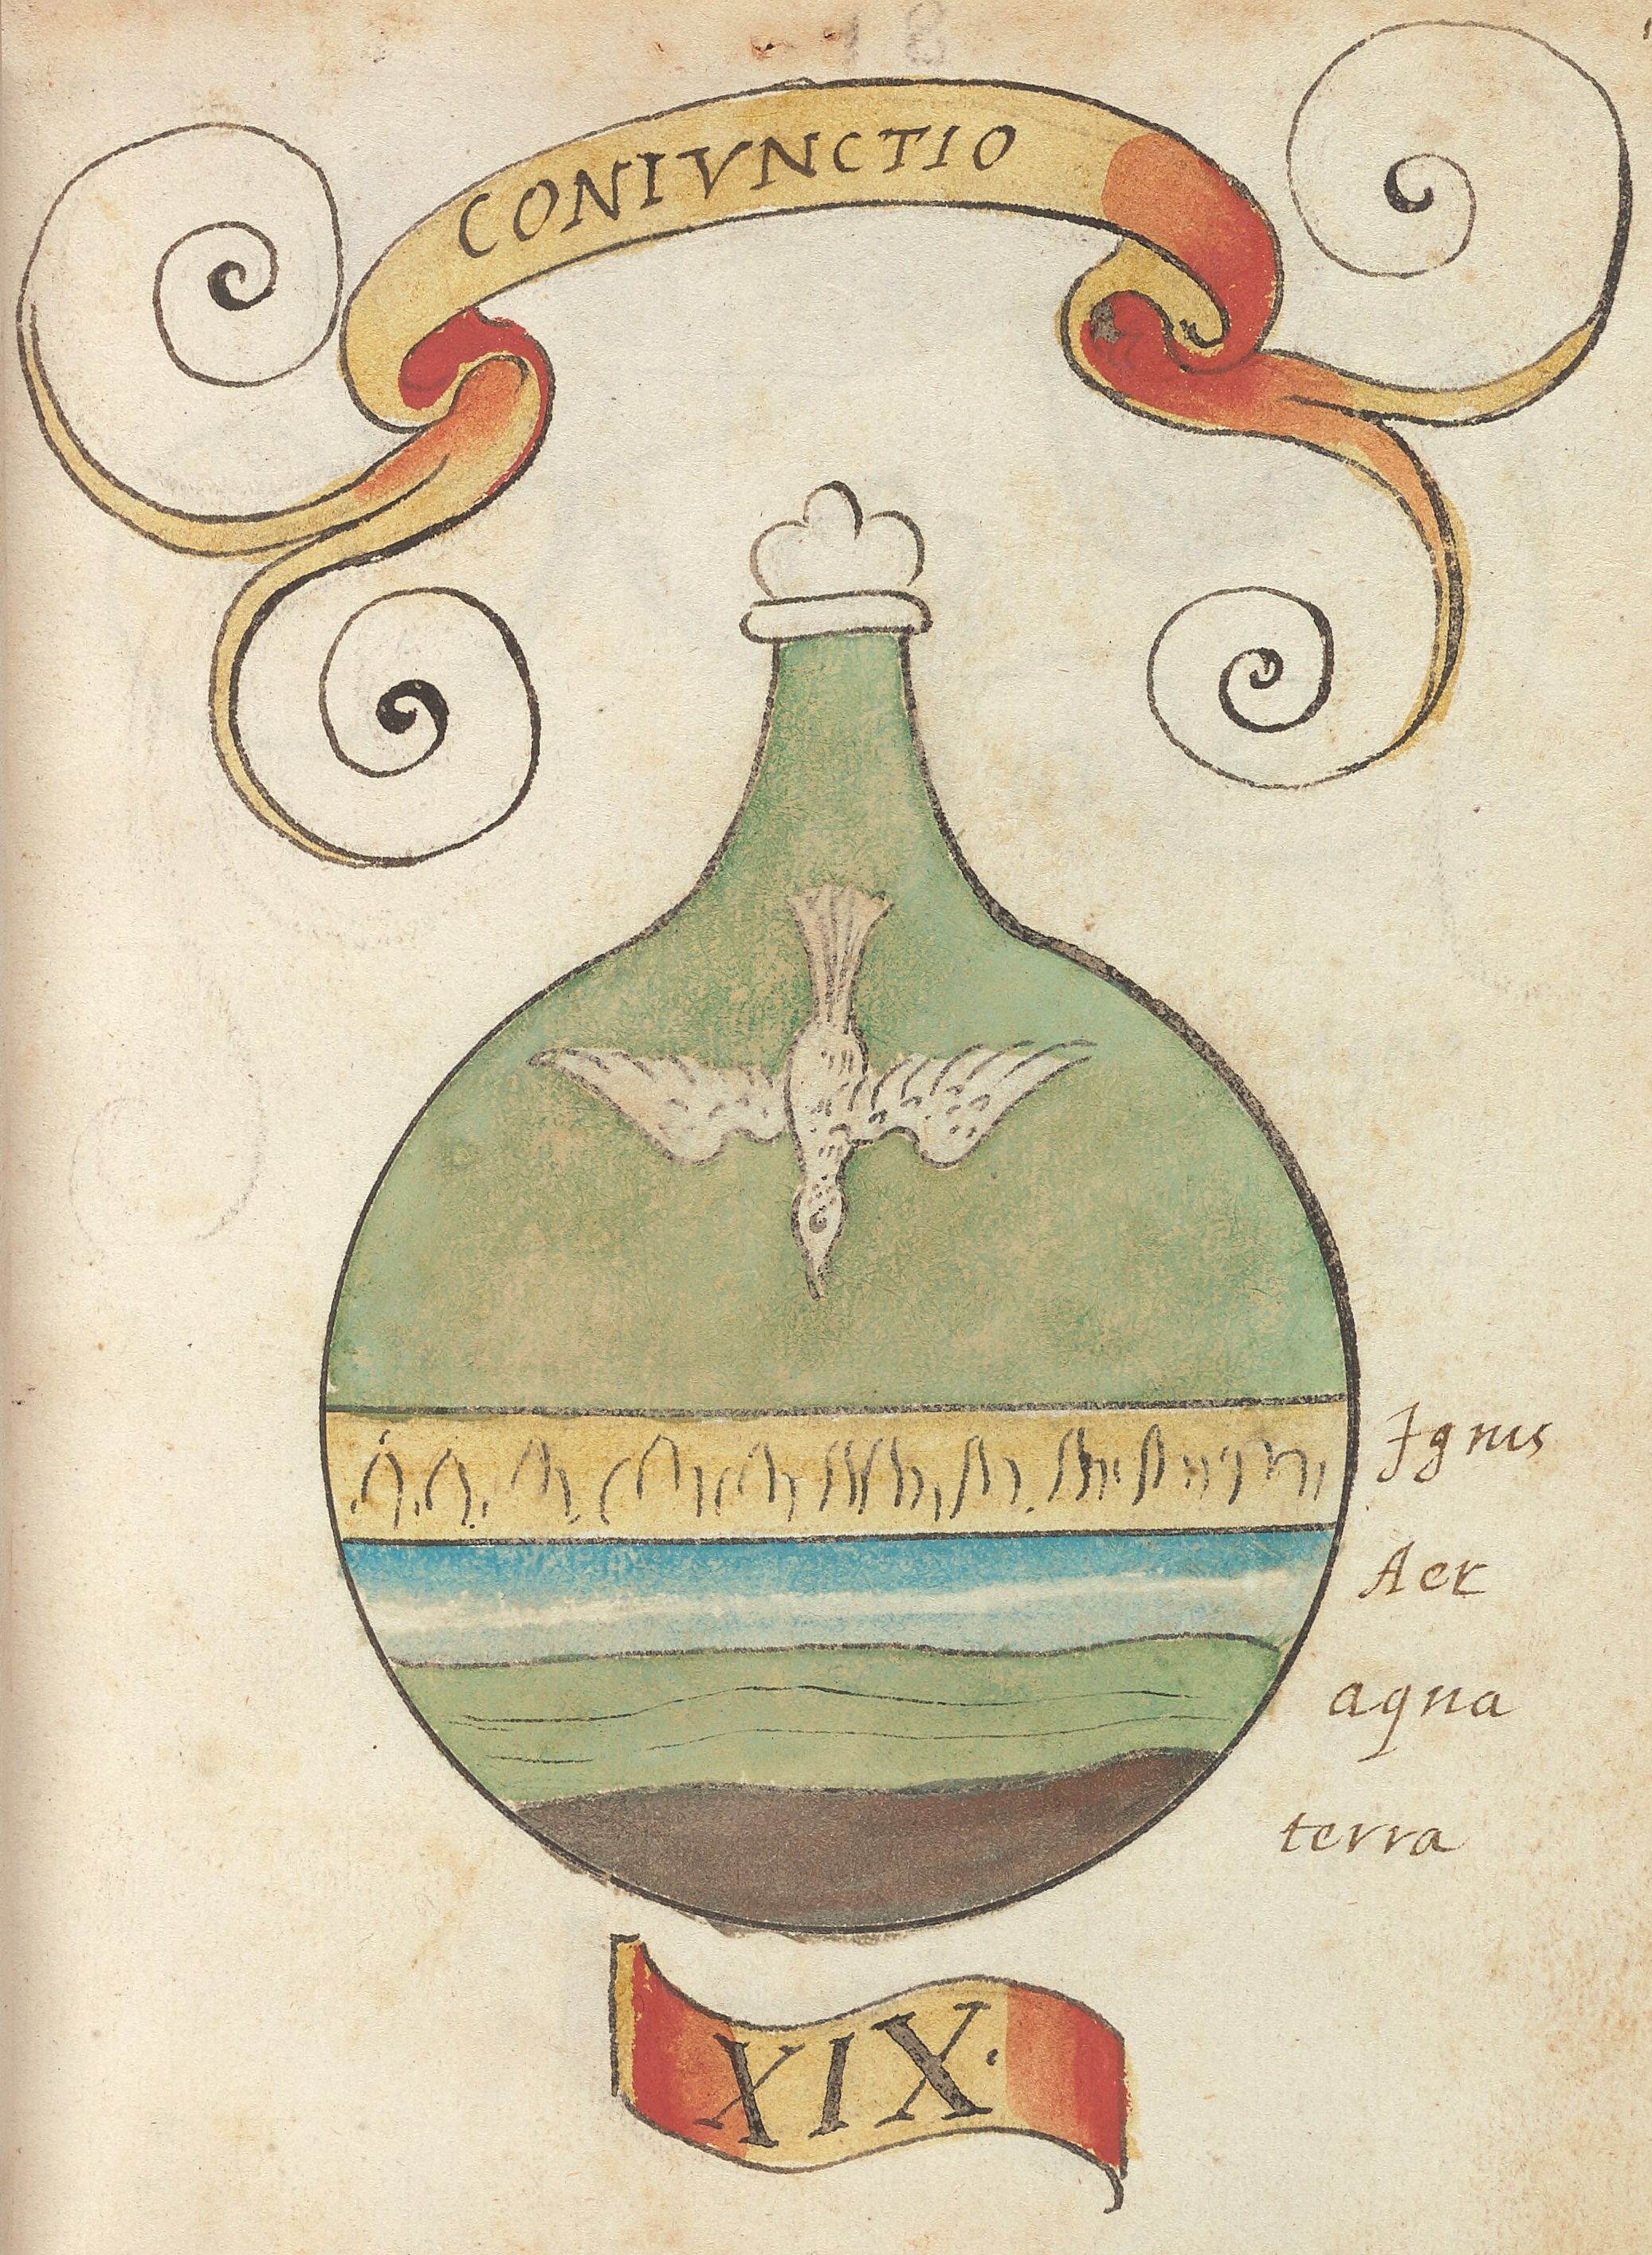 CONIVNCTIO
Ignis
Aer
aqua
terra
XIX.